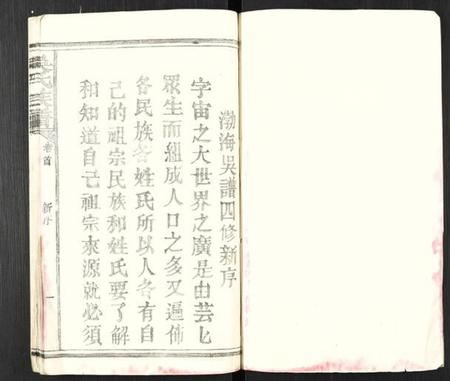 渤海吳譜四修新序
宇宙之大世界之廣是由芸匕
眾生而組成人口之多又遍佈
各民族各姓氏所以人各有自
己的祖宗民族和姓氏要了解
和知道自己祖宗來源就必須
吳氏族譜
卷首
新序
一